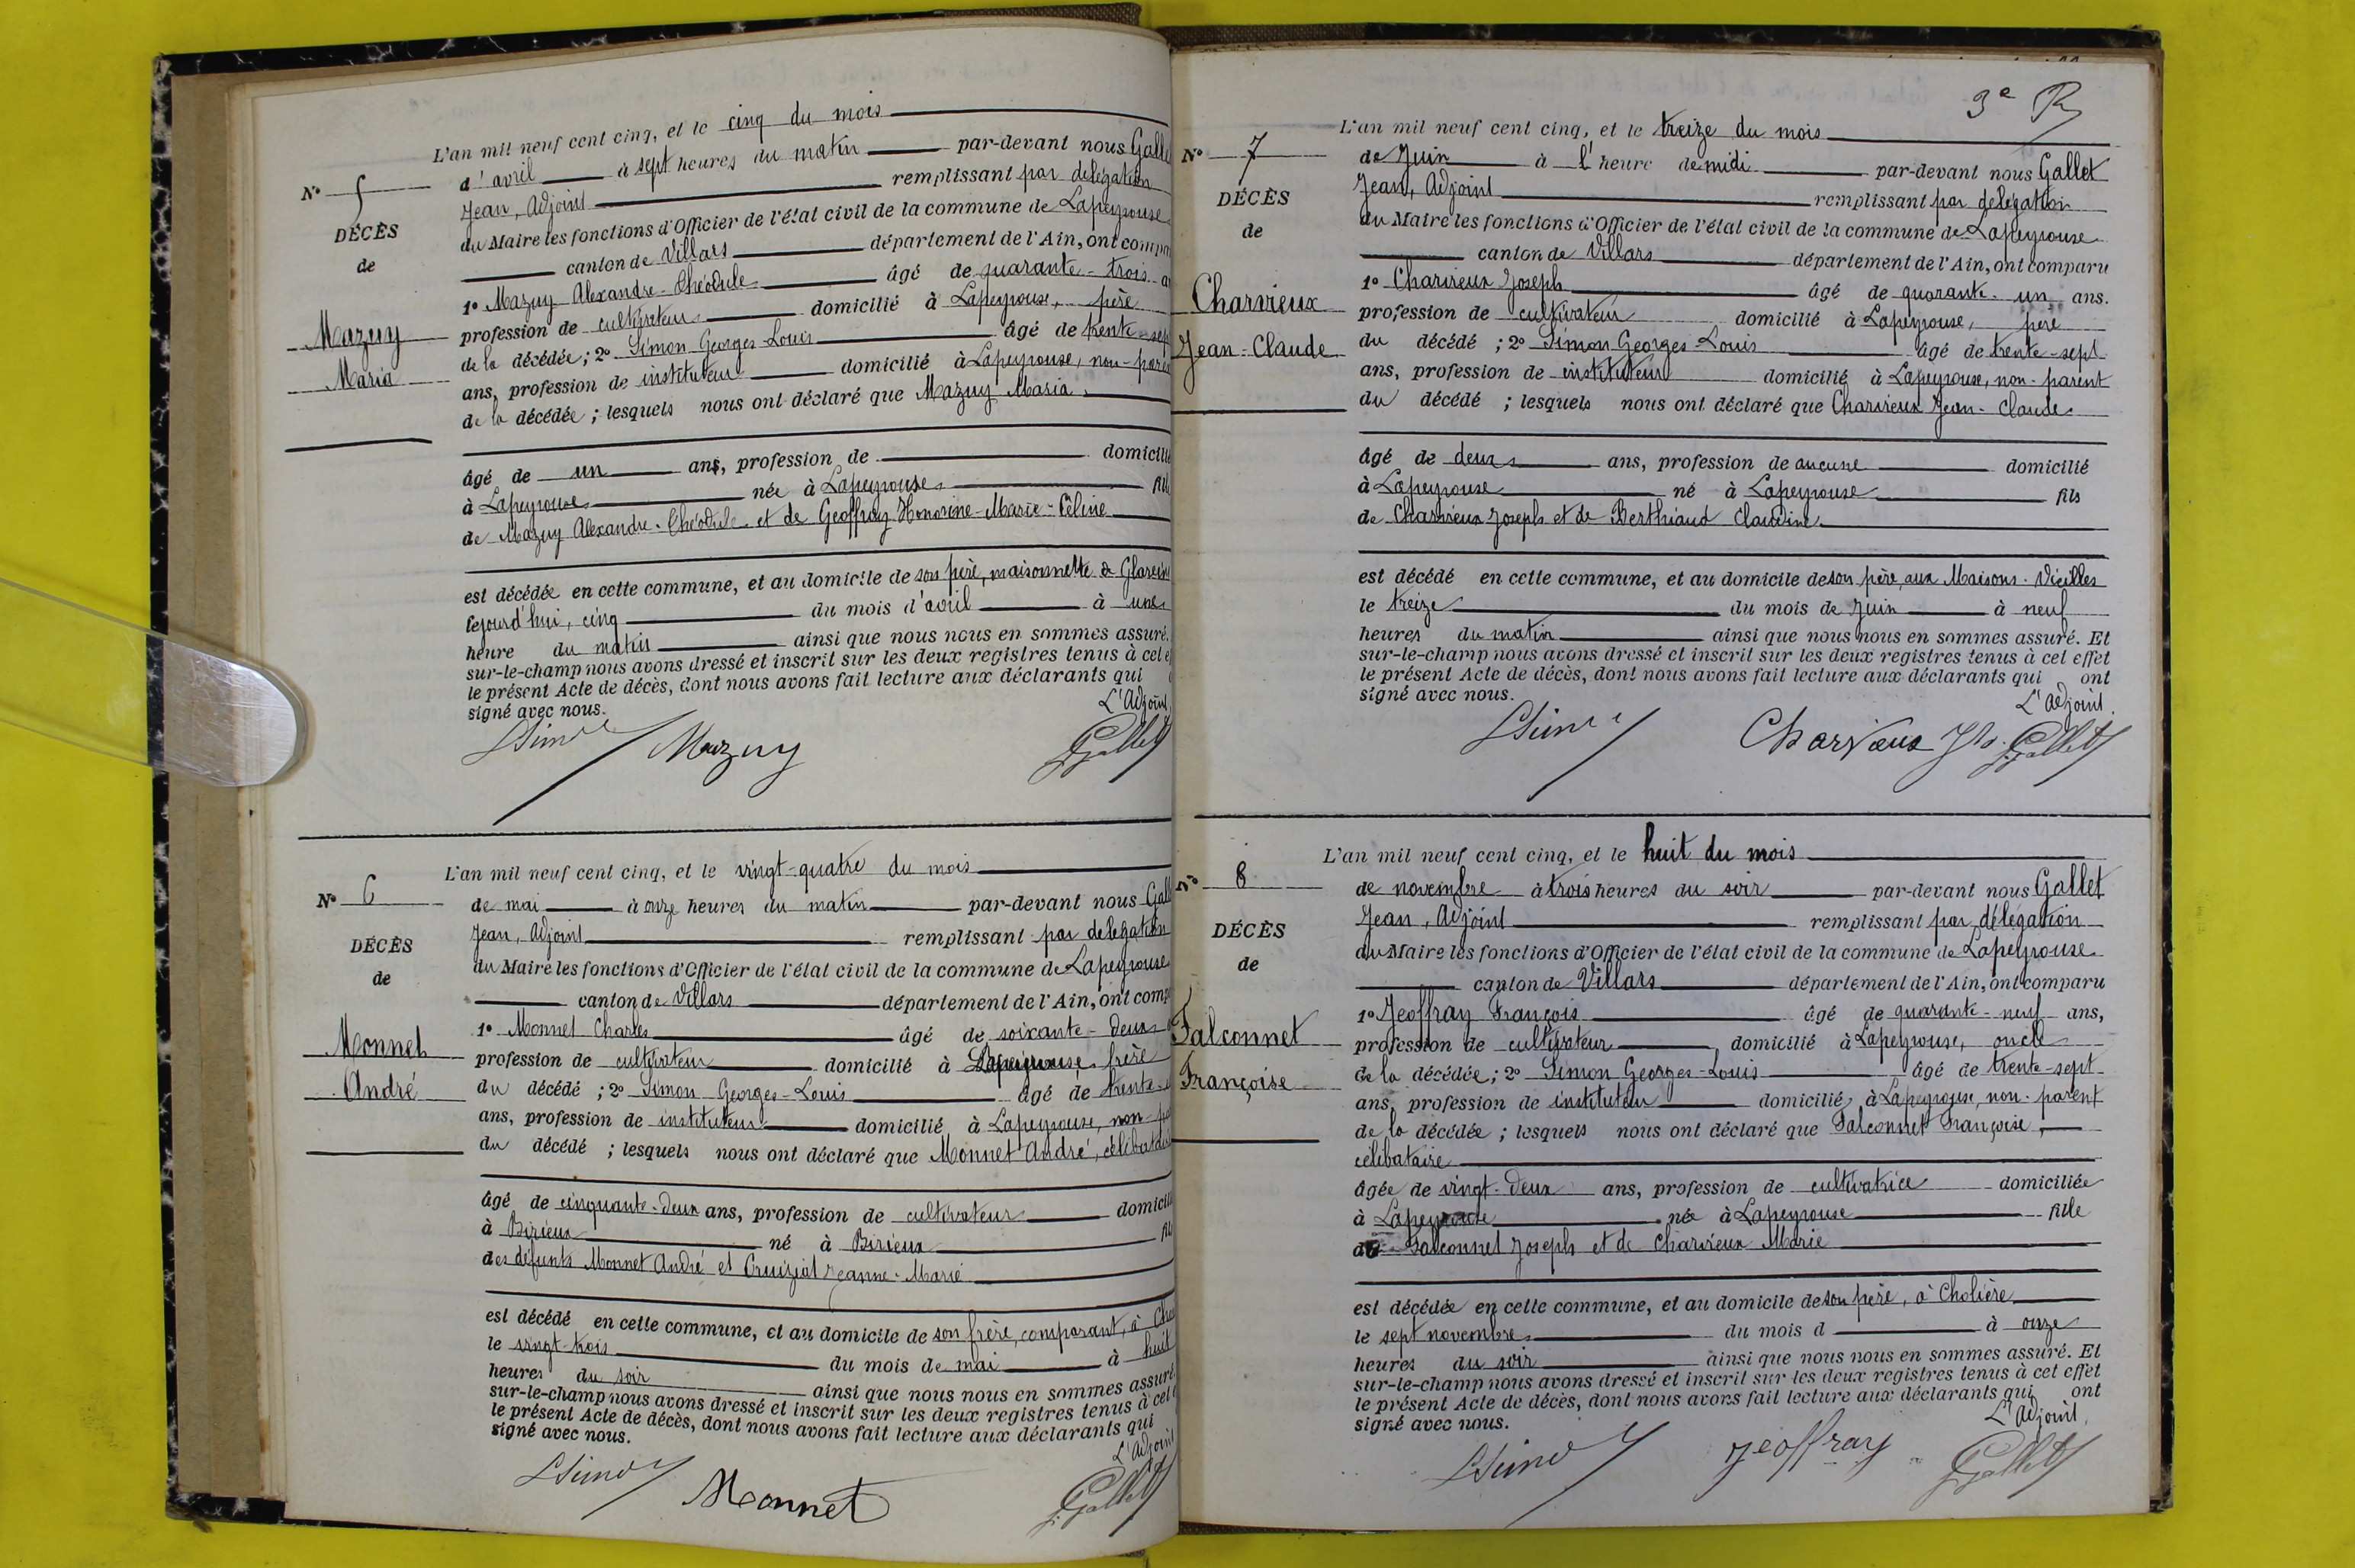 L'an mil neuf cent cinq, et le cinq du mois
N° 5
DÉCÈS
de
Mazuy
Maria
d'avril à sept heures du matin par-devant nous Galle
Jean, Adjoint remplissant par délégation
du Maire les fonctions d'Officier de l'état civil de la commune de Lapeyrouse
canton de Villars département de l'Ain, ont compa
1° Mazuy Alexandre-Théodule âgé de quarante-trois
profession de cultivateur domicilié à Lapeyrouse, père
de la décédée; 2° Simon Georges-Louis âgé de trente-sep
ans, profession de instituteur domicilié à Lapeyrouse, non-paren
de la décédée; lesquels nous ont déclaré que Mazuy Maria
âgé de un an, profession de domicilié
à Lapeyrouse née à Lapeyrouse fille
de Mazuy Alexandre-Théodule et de Geoffray Honorine-Marie-Céline
est décédée en cette commune, et au domicile de son père, maisonnette de
cejourd'hui, cinq du mois d'avril à une
heure du matin ainsi que nous nous en sommes assuré.
sur-le-champ nous avons dressé et inscrit sur les deux registres tenus à cet e
le présent Acte de décès, dont nous avons fait lecture aux déclarants qui
signé avec nous.
L'Adjoint,
LSimon Mazuy JGallet
L'an mil neuf cent cinq, et le vingt-quatre du mois
N° 6
DÉCÈS
de
Monnet
André
de mai à onze heures du matin par-devant nous Gall
Jean, Adjoint remplissant par délégation
du Maire les fonctions d'Officier de l'état civil de la commune de Lapeyrouse
canton de Villars département de l'Ain, ont comp
1° Monnet Charles âgé de soixante-deux
profession de cultivateur domicilié à Lapeyrouse frère
du décédé; 2° Simon Georges-Louis âgé de trente-
ans, profession de instituteur domicilié à Lapeyrouse, non-pa
du décédé; lesquels nous ont déclaré que Monnet André, célibatai
âgé de cinquante-deux ans, profession de cultivateur domicil
à Birieux né à Birieux fil
des défunts Monnet André et Cruiziat Jeanne-Marie
est décédé en cette commune, et au domicile de son frère, comparant, à
le vingt-trois du mois de mai à huit
heures du soir ainsi que nous nous en sommes assuré.
sur-le-champ nous avons dressé et inscrit sur les deux registres tenus à cet
le présent Acte de décès, dont nous avons fait lecture aux déclarants qui
signé avec nous.
L'Adjoint
LSimon Monnet J.Gallet
3e R
L'an mil neuf cent cinq, et le treize du mois
N° 7
DÉCÈS
de
Charvieux
Jean-Claude
de Juin à l'heure de midi par-devant nous Gallet
Jean, Adjoint remplissant par délégation
du Maire les fonctions d'Officier de l'état civil de la commune de Lapeyrouse
canton de Villars département de l'Ain, ont comparu
1° Charvieux Joseph âgé de quarante-un ans.
profession de cultivateur domicilié à Lapeyrouse, père
du décédé; 2° Simon Georges-Louis âgé de trente-sept
ans, profession de instituteur domicilié à Lapeyrouse, non-parent
du décédé; lesquels nous ont déclaré que Charvieux Jean-Claude
âgé de deux ans, profession de aucune domicilié
à Lapeyrouse né à Lapeyrouse fils
de Charvieux Joseph et de Berthiaud Claudine
est décédé en cette commune, et au domicile de son père, aux Maisons-Vieilles
le treize du mois de Juin à neuf
heures du matin ainsi que nous nous en sommes assuré. Et
sur-le-champ nous avons dressé et inscrit sur les deux registres tenus à cet effet
le présent Acte de décès, dont nous avons fait lecture aux déclarants qui ont
signé avec nous.
L'Adjoint.
LSimon Charvieux Jh. J.Gallet
L'an mil neuf cent cinq, et le huit du mois
N° 8
DÉCÈS
de
Falconnet
Françoise
de novembre à trois heures du soir par-devant nous Gallet
Jean, Adjoint remplissant par délégation
du Maire les fonctions d'Officier de l'état civil de la commune de Lapeyrouse
canton de Villars département de l'Ain, ont comparu
1° Jeoffray François âgé de quarante-neuf ans,
profession de cultivateur domicilié à Lapeyrouse, oncle
de la décédée; 2° Simon Georges-Louis âgé de trente-sept
ans, profession de instituteur domicilié à Lapeyrouse, non-parent
de la décédée; lesquels nous ont déclaré que Falconnet Françoise,
célibataire
âgée de vingt-deux ans, profession de cultivatrice domiciliée
à Lapeyrouse née à Lapeyrouse fille
de Falconnet Joseph et de Charvieux Marie
est décédée en cette commune, et au domicile de son père, à Cholière
le sept novembre du mois d à onze
heures du soir ainsi que nous nous en sommes assuré. Et
sur-le-champ nous avons dressé et inscrit sur les deux registres tenus à cet effet
le présent Acte de décès, dont nous avons fait lecture aux déclarants qui ont
signé avec nous.
L'Adjoint,
LSimon Jeoffray J.Gallet